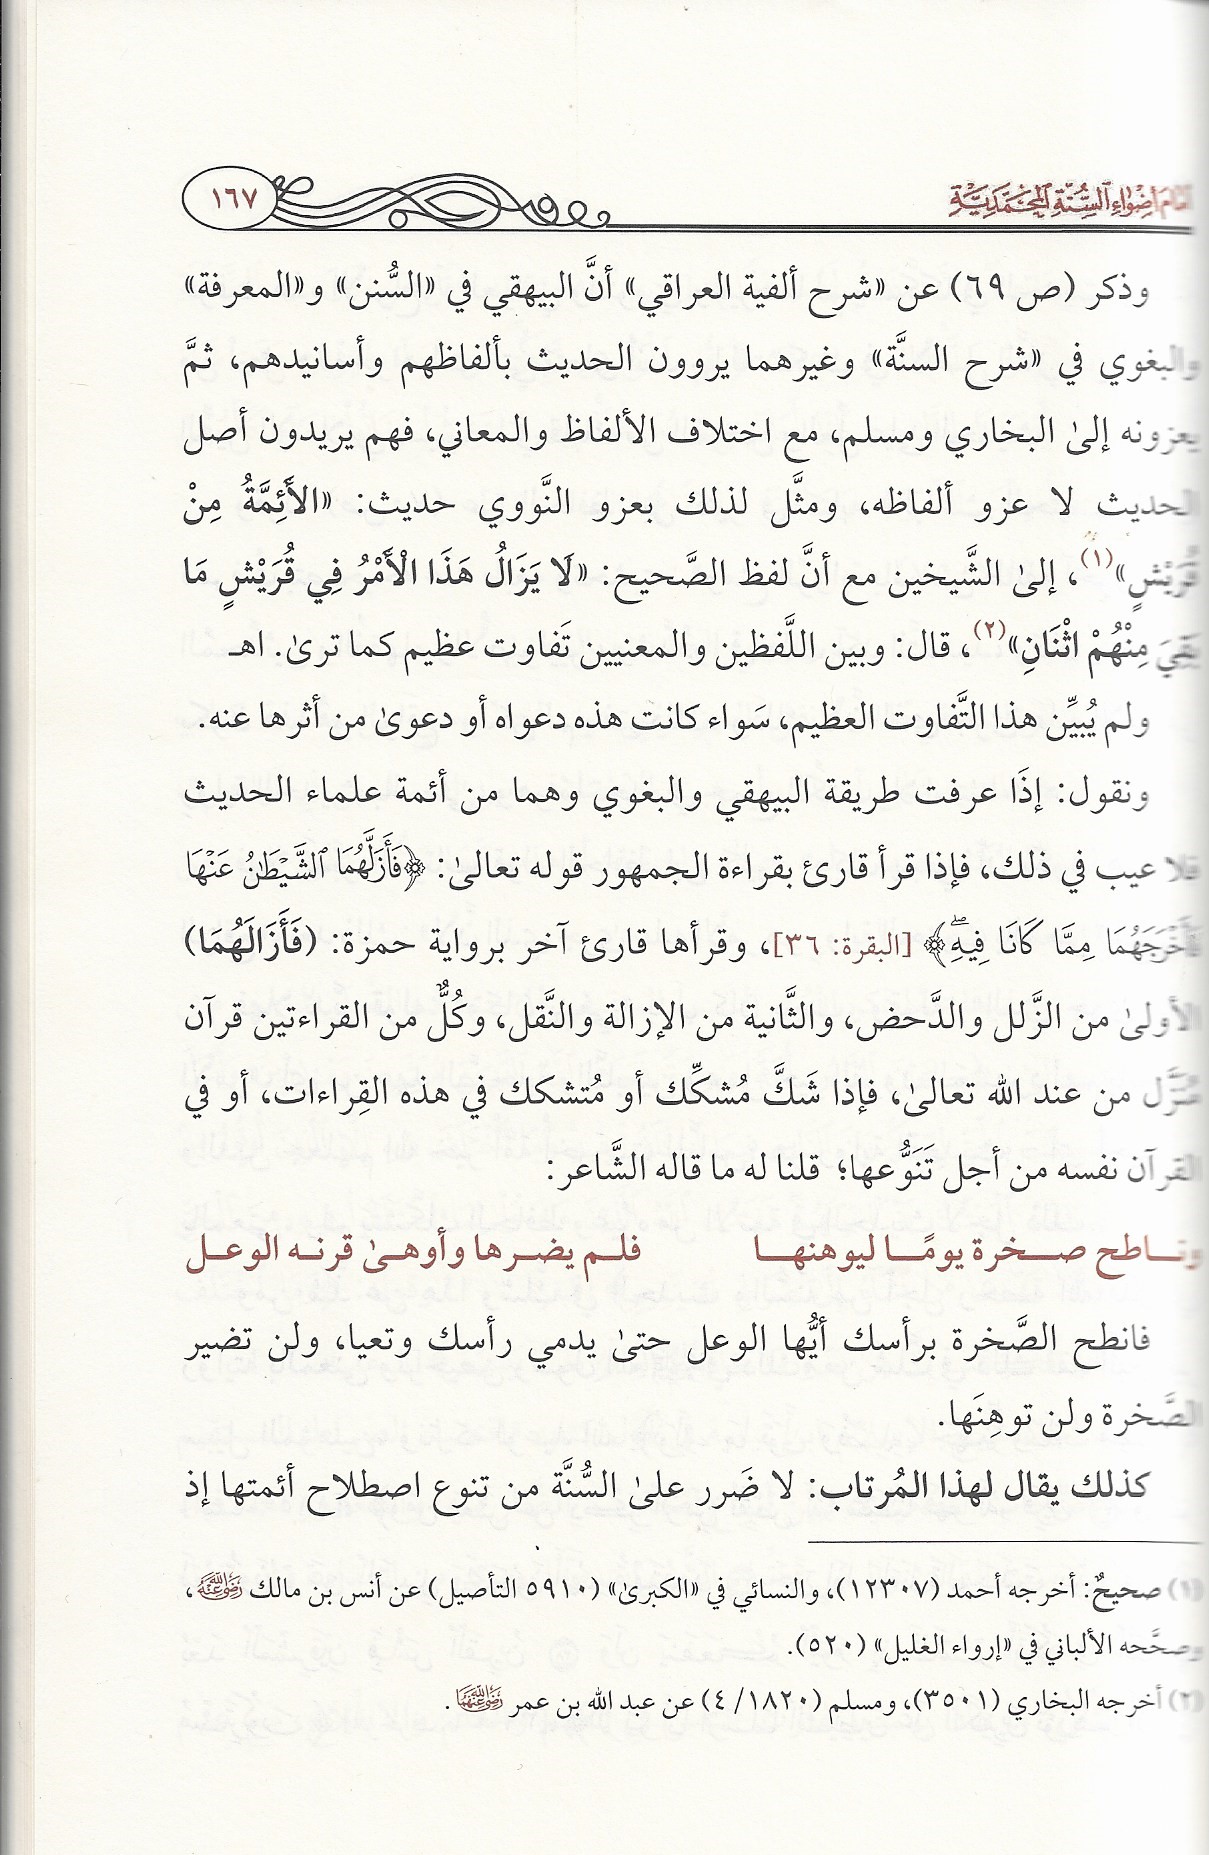 أمام أضواء السنة المحمدية
١٦٧
وذكر (ص ٦٩) عن «شرح ألفية العراقي» أنَّ البيهقي في «السُّنن» و«المعرفة»
والبغوي في «شرح السنَّة» وغيرهما يروون الحديث بألفاظهم وأسانيدهم، ثمَّ
يعزونه إلىٰ البخاري ومسلم، مع اختلاف الألفاظ والمعاني، فهم يريدون أصل
الحديث لا عزو ألفاظه، ومثَّل لذلك بعزو النَّووي حديث: «الأَئِمَّةُ مِنْ
قُرَيْشٍ»(١)، إلىٰ الشَّيخين مع أنَّ لفظ الصَّحيح: «لَا يَزَالُ هَذَا الْأَمْرُ فِي قُرَيْشٍ مَا
بَقِيَ مِنْهُمْ اثْنَانِ»(٢)، قال: وبين اللَّفظين والمعنيين تَفاوت عظيم كما ترىٰ. اهـ
ولم يُبيِّن هذا التَّفاوت العظيم، سَواء كانت هذه دعواه أو دعوىٰ من أثرها عنه.
ونقول: إذَا عرفت طريقة البيهقي والبغوي وهما من أئمة علماء الحديث
فلا عيب في ذلك، فإذا قرأ قارئ بقراءة الجمهور قوله تعالىٰ: ﴿فَأَزَلَّهُمَا ٱلشَّيْطَٰنُ عَنْهَا
فَأَخْرَجَهُمَا مِمَّا كَانَا فِيهِۖ﴾ [البقرة: ٣٦]، وقرأها قارئ آخر برواية حمزة: (فَأَزَالَهُمَا)
الأولىٰ من الزَّلل والدَّحض، والثَّانية من الإزالة والنَّقل، وكُلٌّ من القراءتين قرآن
مُنزَّل من عند الله تعالىٰ، فإذا شَكَّ مُشكِّك أو مُتشكك في هذه القِراءات، أو في
القرآن نفسه من أجل تَنَوُّعها؛ قلنا له ما قاله الشَّاعر:
وناطح صخرة يومًا ليوهنها فلم يضرها وأوهىٰ قرنه الوعل
فانطح الصَّخرة برأسك أيُّها الوعل حتىٰ يدمي رأسك وتعيا، ولن تضير
الصَّخرة ولن توهِنَها.
كذلك يقال لهذا المُرتاب: لا ضَرر علىٰ السُّنَّة من تنوع اصطلاح أئمتها إذ
(١) صحيحٌ: أخرجه أحمد (١٢٣٠٧)، والنسائي في «الكبرىٰ» (٥٩١٠ التأصيل) عن أنس بن مالك رَضِيَ اللَّهُ عَنْهُ،
وصحَّحه الألباني في «إرواء الغليل» (٥٢٠).
(٢) أخرجه البخاري (٣٥٠١)، ومسلم (٤/١٨٢٠) عن عبد الله بن عمر رَضِيَ اللَّهُ عَنْهُمَا.